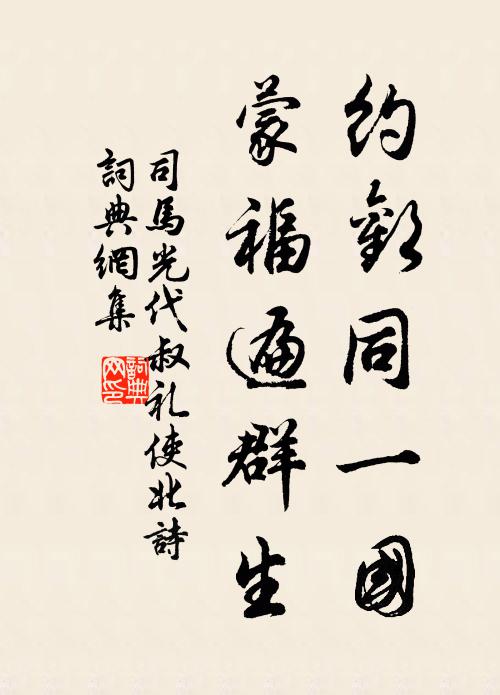 約歡同一國
蒙福遍群生
司馬光代叔礼使北詩
詞典網集
詞典
网印